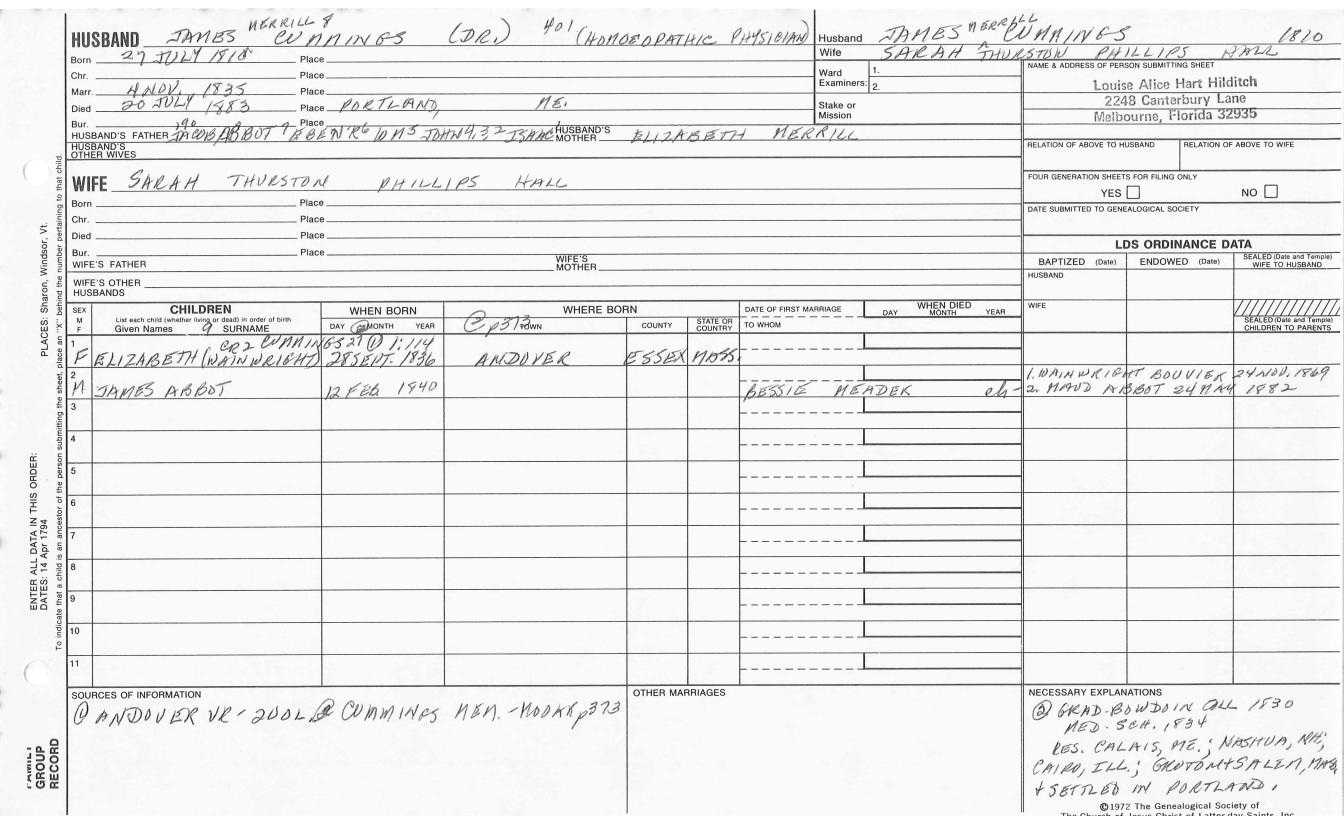 HUSBAND JAMES MERRILL 8 CUMMINGS (DR.) 401 (HOMOEOPATHIC PHYSICIAN)
Born 27 JULY 1810 Place
Chr. Place
Marr. 4 NOV. 1835 Place
Died 20 JULY 1883 Place PORTLAND, ME.
Bur. Place
HUSBAND'S FATHER JACOB ABBOT 7 EBEN'R 6 WM 5 JOHN 4,3,2 ISAAC 1 HUSBAND'S MOTHER ELIZABETH MERRILL
HUSBAND'S OTHER WIVES
Husband JAMES MERRILL CUMMINGS 1810
Wife SARAH THURSTON PHILLIPS HALL
Ward Examiners: 1.
2.
Stake or Mission
NAME & ADDRESS OF PERSON SUBMITTING SHEET
Louise Alice Hart Hilditch
2248 Canterbury Lane
Melbourne, Florida 32935
RELATION OF ABOVE TO HUSBAND RELATION OF ABOVE TO WIFE
FOUR GENERATION SHEETS FOR FILING ONLY
YES NO
DATE SUBMITTED TO GENEALOGICAL SOCIETY
WIFE SARAH THURSTON PHILLIPS HALL
Born Place
Chr. Place
Died Place
Bur. Place
WIFE'S FATHER WIFE'S MOTHER
WIFE'S OTHER HUSBANDS
LDS ORDINANCE DATA
BAPTIZED (Date) ENDOWED (Date) SEALED (Date and Temple) WIFE TO HUSBAND
HUSBAND
WIFE
SEALED (Date and Temple) CHILDREN TO PARENTS
SEX M F
CHILDREN
List each child (whether living or dead) in order of birth
Given Names 9 SURNAME
WHEN BORN
DAY MONTH YEAR
WHERE BORN
② p373 TOWN COUNTY STATE OR COUNTRY
DATE OF FIRST MARRIAGE
TO WHOM
WHEN DIED
DAY MONTH YEAR
CR2 CUMMINGS 27 ① 1:114
1 F ELIZABETH (WAINWRIGHT) 28 SEPT. 1836 ANDOVER ESSEX MASS.
2 M JAMES ABBOT 12 FEB 1840 BESSIE MEADER ch-
1. WAINWRIGHT BOUVIER 24 NOV. 1869
2. MAUD ABBOT 24 MAY 1882
3
4
5
6
7
8
9
10
11
SOURCES OF INFORMATION
① ANDOVER VR - 2 VOL ② CUMMINGS MEM. - MOOAR p373
OTHER MARRIAGES
NECESSARY EXPLANATIONS
② GRAD. BOWDOIN COLL 1830
MED. SCH. 1834
RES. CALAIS, ME.; NASHUA, NH;
CAIRO, ILL.; GROTON + SALEM, MASS
+ SETTLED IN PORTLAND.
©1972 The Genealogical Society of
The Church of Jesus Christ of Latter-day Saints, Inc.
PLACES: Sharon, Windsor, Vt.
ENTER ALL DATA IN THIS ORDER:
DATES: 14 Apr 1794
To indicate that a child is an ancestor of the person submitting the sheet, place an "X" behind the number pertaining to that child.
FAMILY GROUP RECORD